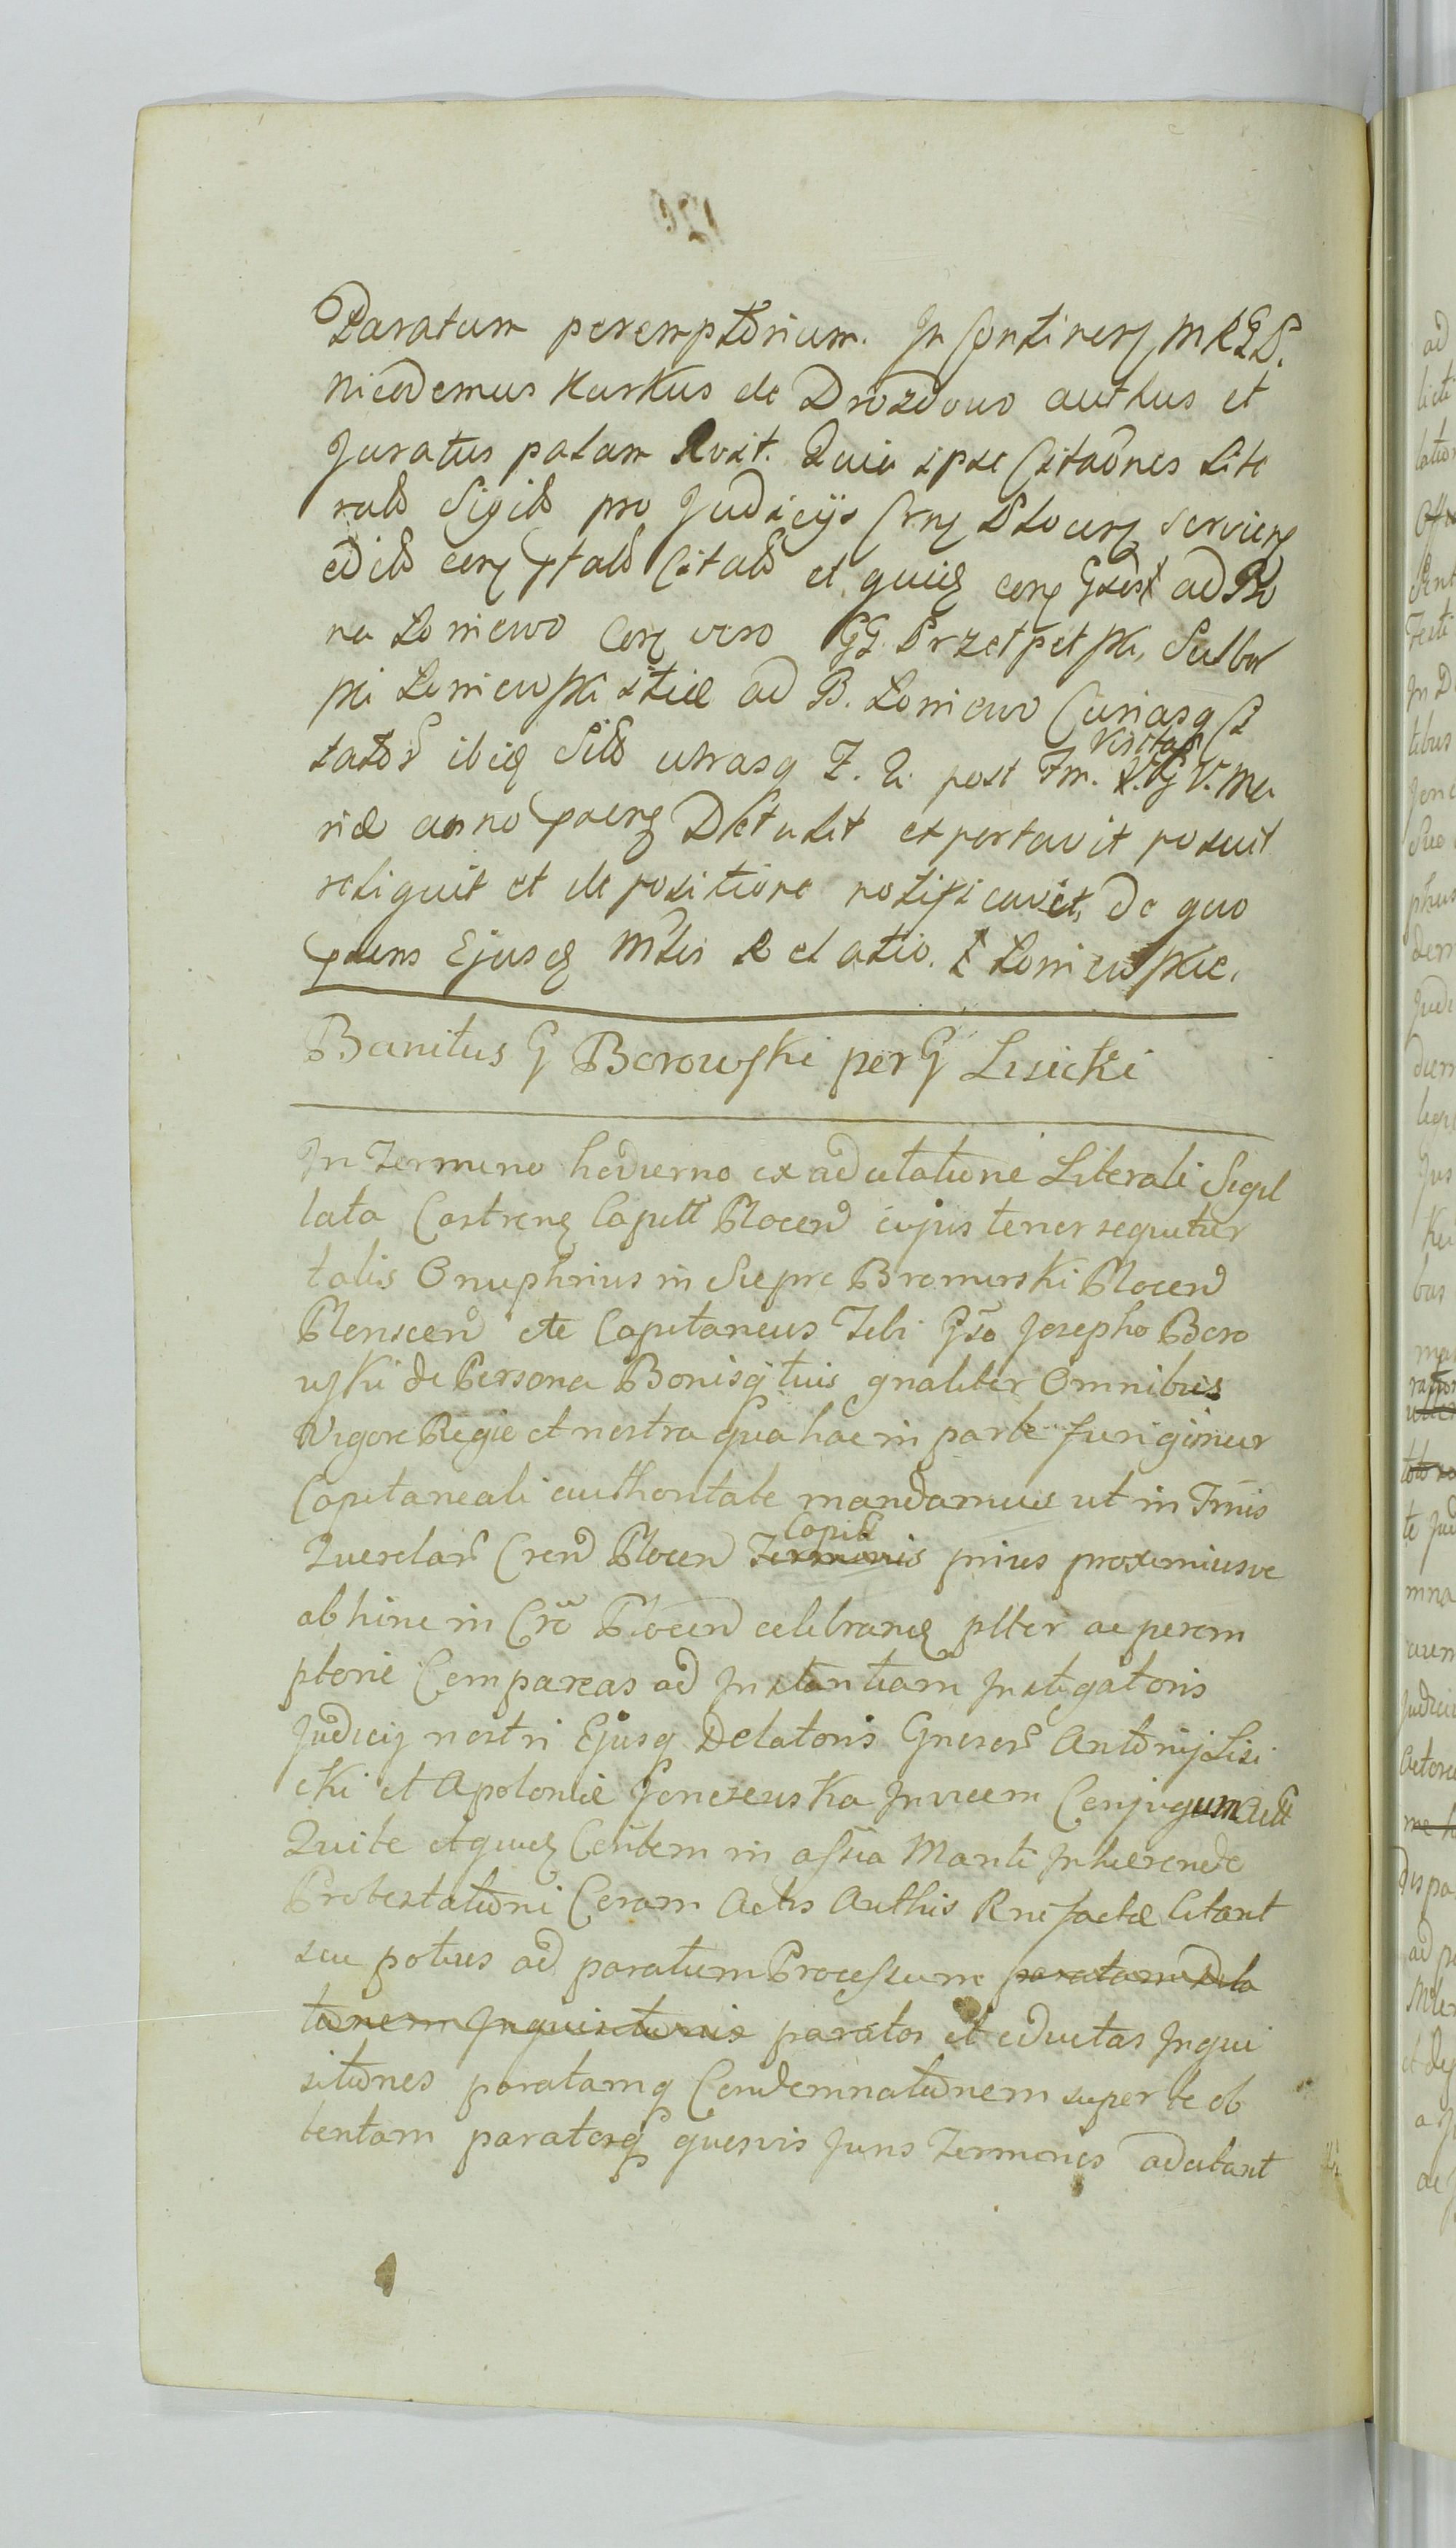 Paratum peremptorium. In Continen MRGD.
Nicodemus Kurkus de Drozdowo authus et
Juratus palam Rvit. Quia ipse Citaōnes Lite
rales Sigils pro Judicijs Crn Plocen servien
na Loniewo Con vero GG. Przetpelski, Sulbor
ski Loniewski itiæ ad B. Loniewo Curiasq Ci
ibiq utrasq F. 2. post Fm. Visitat G V. Ma
riæ anno detulit exportavit posuit
reliquit et de positione notificavit, de quo
pdens Ejusd Mlis Relatio. Loniewskie.
Banitus G Borowski per G Lisicki
In Termino hodierno ex adcitatione Literali Sigil
lata Castren Capitt Plocen cujus tenor sequitur
talis Onuphrius in Siepre Bromirski Plocen
Plonscen ete Capitaneus Tibi Gso Josepho Boro
wski de Persona Bonisq tuis gnaliter Omnibus
Vigore Regie et nostra qua hac in parte fungimur
Capitaneali authoritate mandamus ut in Tmis
Capit
Querelar Cren Plocen Terminis prius proximiusve
abhinc in Cro Plocen celebrand pltter ac perem
ptorie Compareas ad Instantiam Instigatoris
Judicij nostri Ejusq Delatoris Gneros Antonij Lisi
cki et Apolonie Jonczewska Invicem Conjugum Actt
Qui te in assia Manti Inhærende
Protestationi Coram Actis Authis Rne factæ Citant
seu potius ad paratum Processum paratam dila
tionem Inquisitionis paratas et eductas Inqui
sitiones paratamq Condemnationem super te ob
tentam paratosq quosvis Juris Terminos adcitant